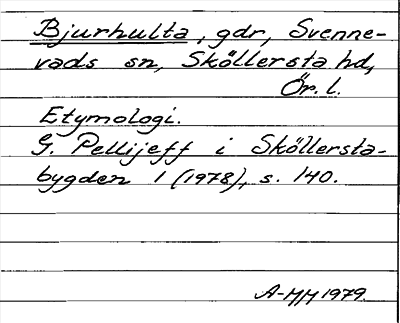 Bjurhulta, gdr, Svenne-
vads sn, Sköllersta hd,
Ör. l.
Etymologi.
G. Pellijeff i Sköllersta-
bygden 1 (1978), s. 140.
A-MM 1979.